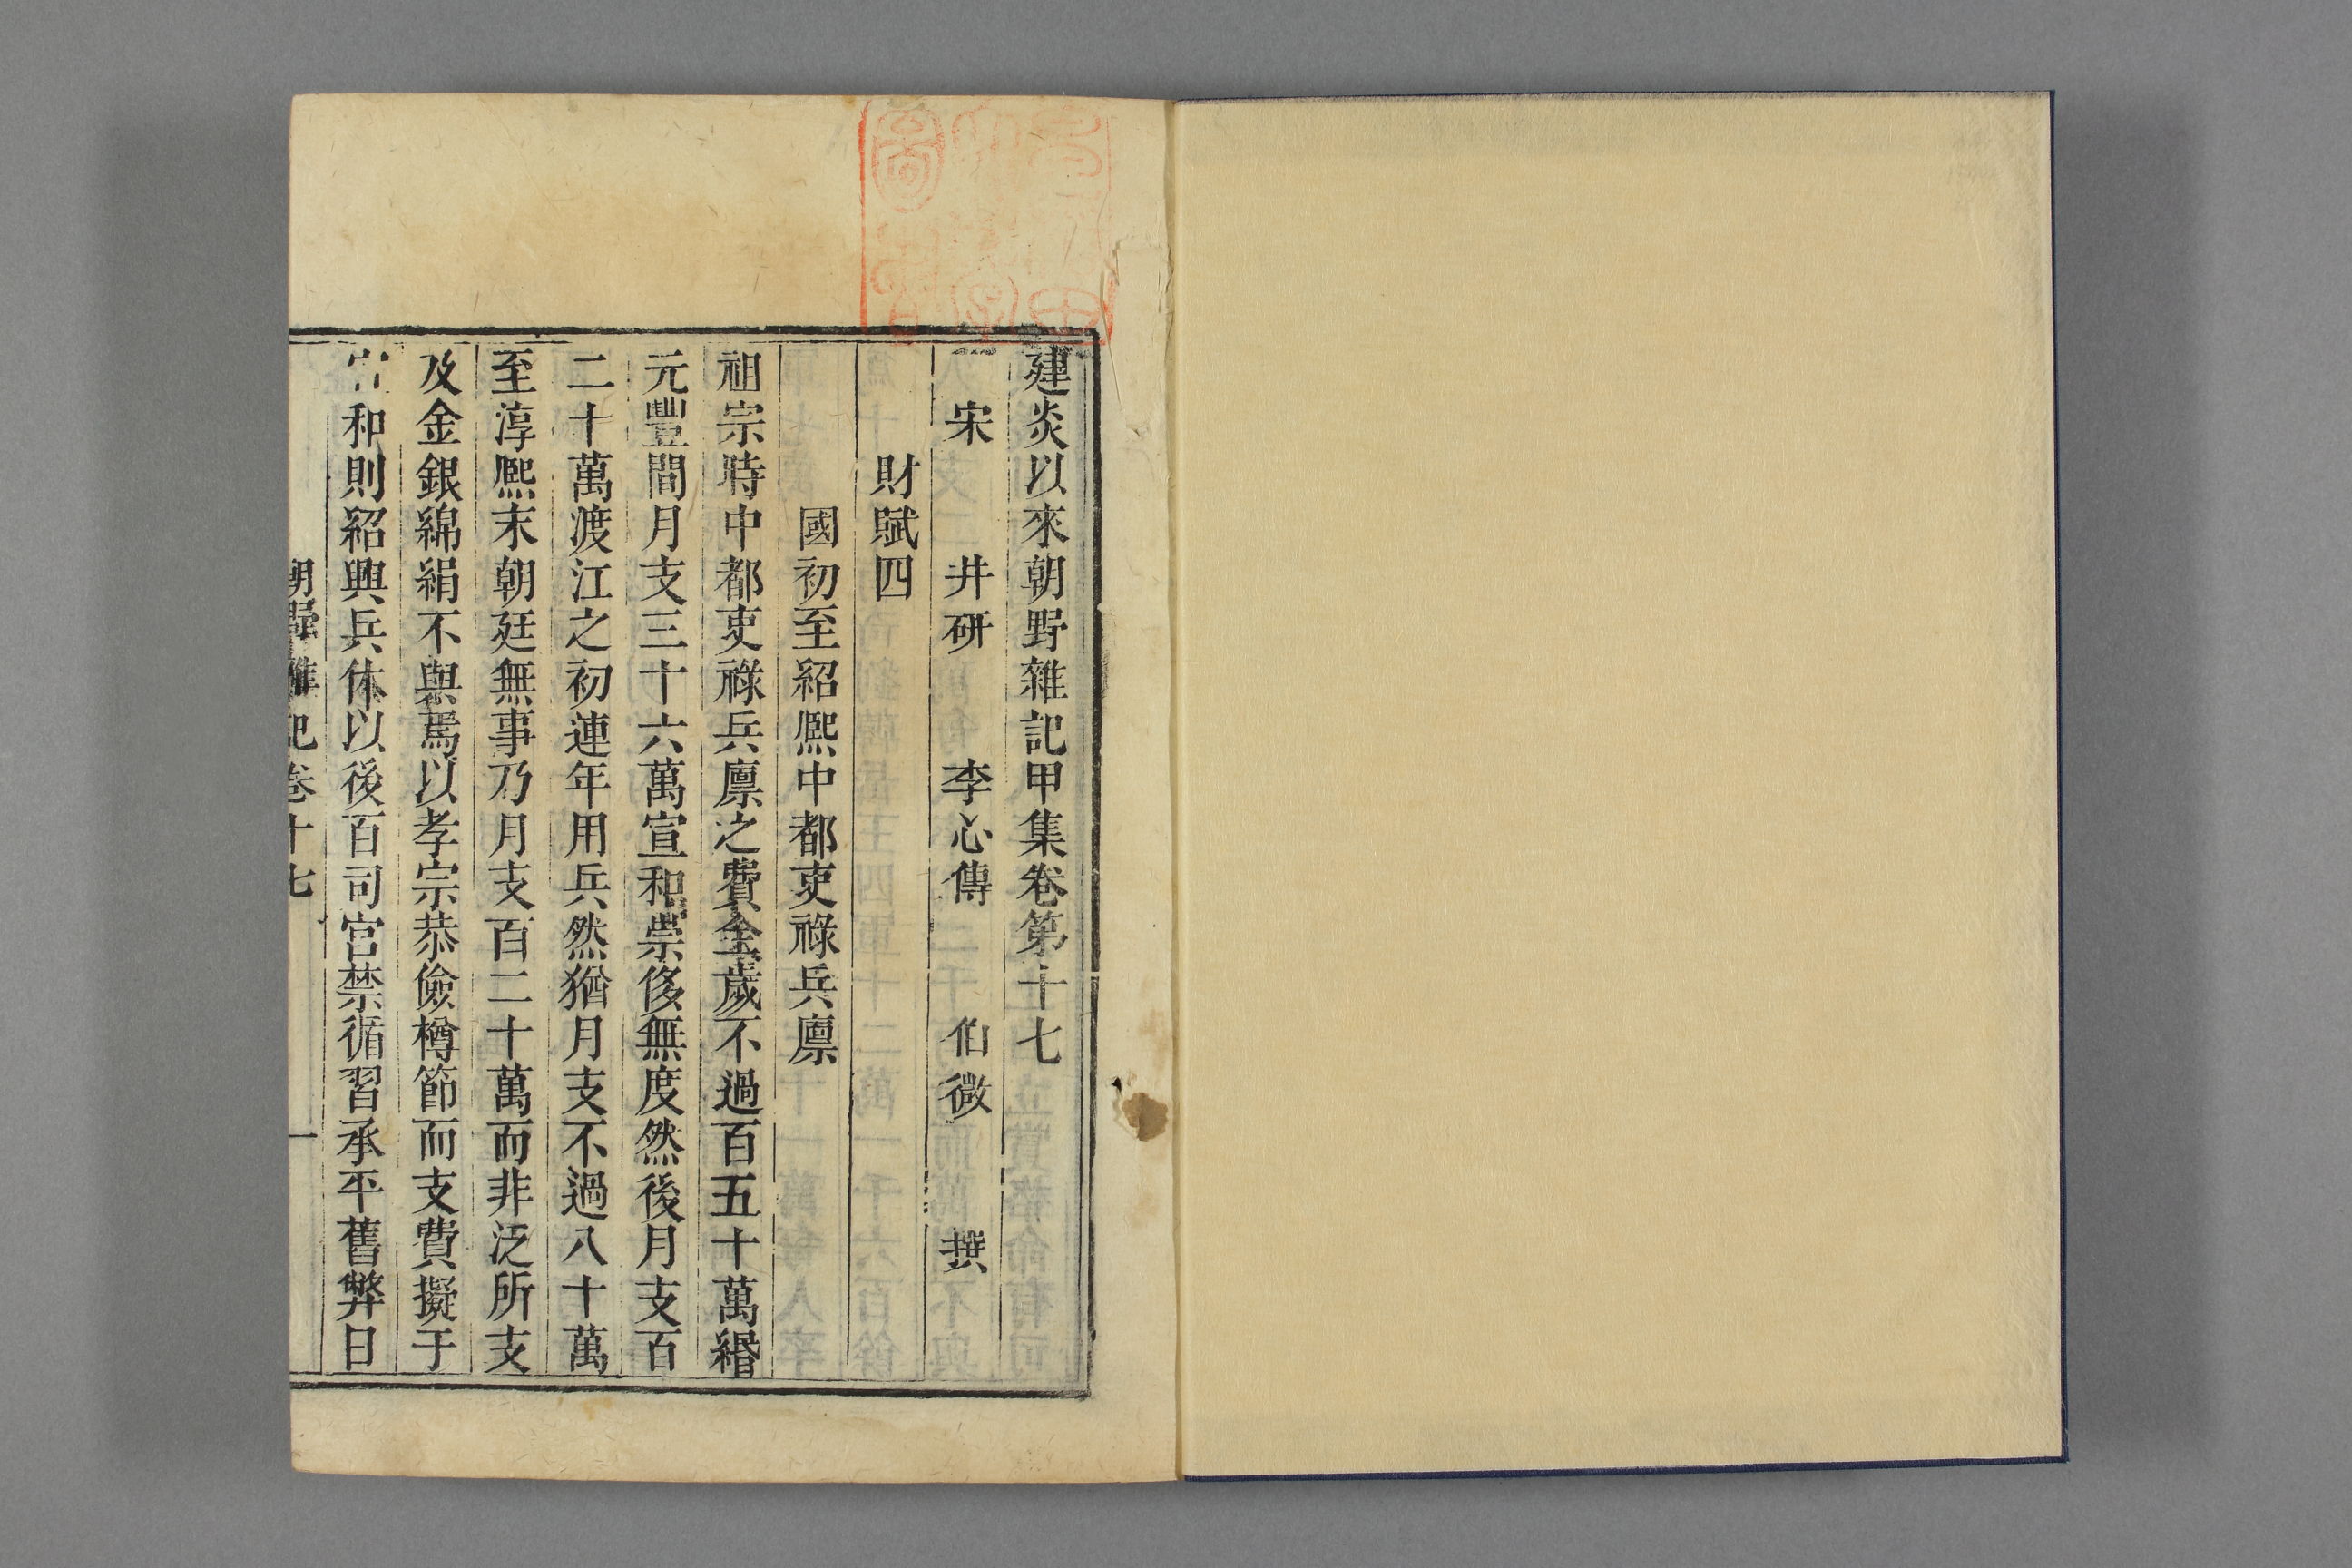 建炎以來朝野雜記甲集卷第十七
宋 井研 李心傳 伯微 撰
財賦四
國初至紹熙中都吏祿兵廩
祖宗時中都吏祿兵廩之費全歲不過百五十萬緡
元豐間月支三十六萬宣和崇侈無度然後月支百
二十萬渡江之初連年用兵然猶月支不過八十萬
至淳熙末朝廷無事乃月支百二十萬而非泛所支
及金銀綿絹不與焉以孝宗恭儉樽節而支費擬于
宣和則紹興兵休以後百司宮禁循習承平舊弊日
朝野雜記卷十七 一